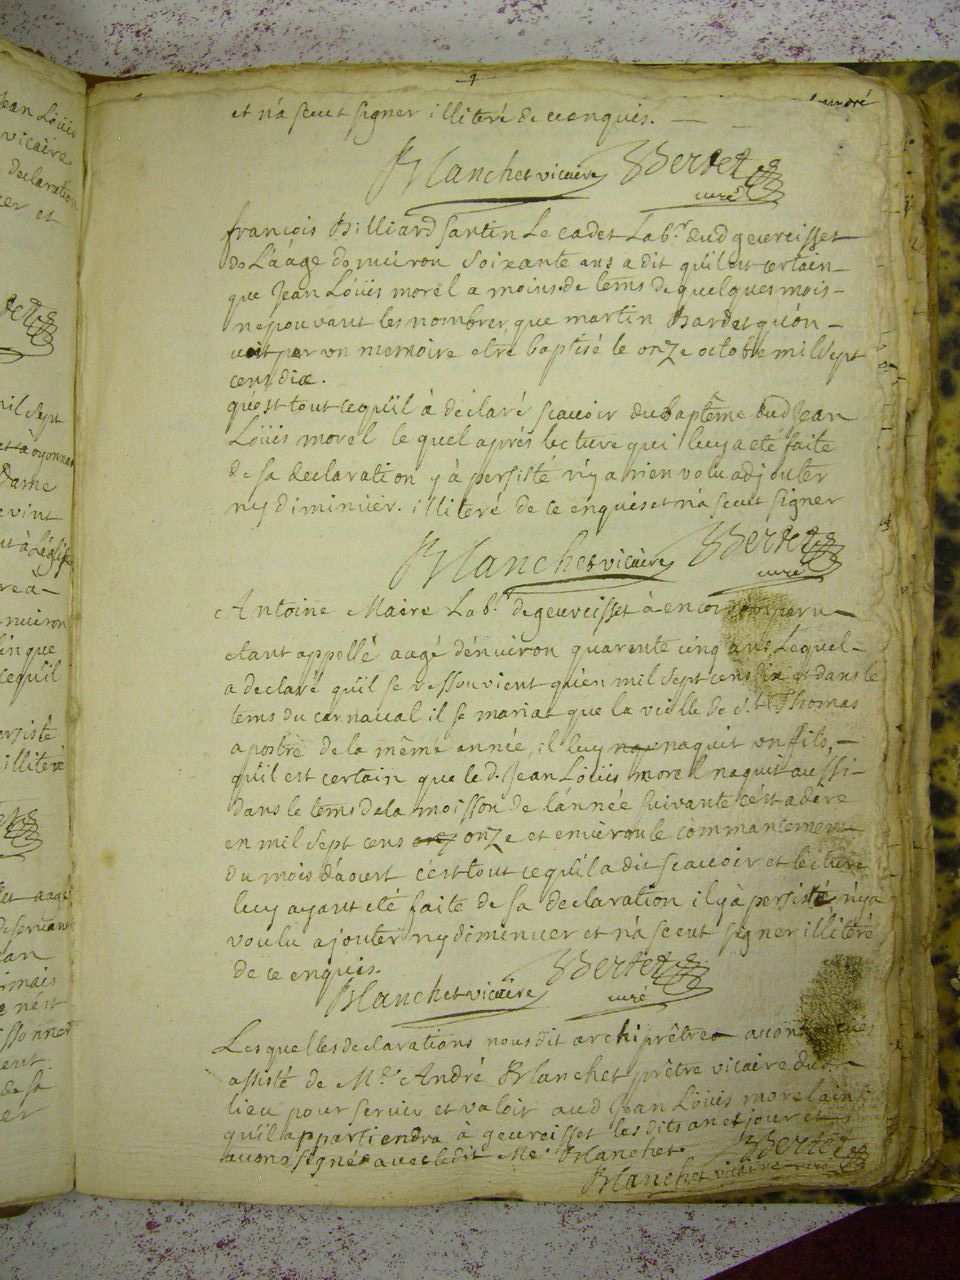 et n'a sceut signer illiteré de ce enquis.
Blanchet vicaire Bertet
curé
françois Billiard Santin Le cadet Labr. dud geuvreisset
De L'aâge denviron Soixante ans a dit qu'il est certain
que Jean Loüis morel a moins de tems de quelques mois
ne pouvant les nombrer, que martin Bardet qu'on
voit par un memoire etre baptisé le onze octobre mil sept
cens dix.
qu'est tout ce qu'il à déclaré scavoir du baptême dud Jean
Loüis morel le quel aprés lecture qui luy a eté faite
de sa declaration y à persisté n'y a rien volu adjouter
ny diminüer. illiteré de ce enquis et n'a sceut signer
Blanchet vicaire Bertet
curé
Antoine Maire Labr. de geuvreisset à encor comparu
etant appellé aagé dénviron quarente cinq ans Lequel
a declaré qu'il se ressouvient qu'en mil sept cens dix et dans le
tems du carnaval il se maria et que la veille de St Thomas
apostre de la même année, il luy naquit un fils,
qu'il est certain que le d. Jean Loüis morel naquit aussi
dans le tems de la moisson de l'année suivante c'est a dire
en mil sept cens onze et environ le commantement
du mois d'aoust c'est tout ce qu'il a dit scavoir et lecture
luy ayant eté faite de sa declaration il y à persisté n'y a
voulu ajouter ny diminuer et n'a sceut signer illiteré
de ce enquis.
Blanchet vicaire Bertet
curé
Lesquelles declarations nous dit archiprêtre avons
assisté de Mr. André Blanchet prêtre vicaire dud
lieu pour servir et valoir aud Jean Loüis morel ainsi
qu'il appartiendra à geuvreisset les dits an et jour et
avons signé avec ledit Me. Blanchet. Bertet
Blanchet vicaire curé